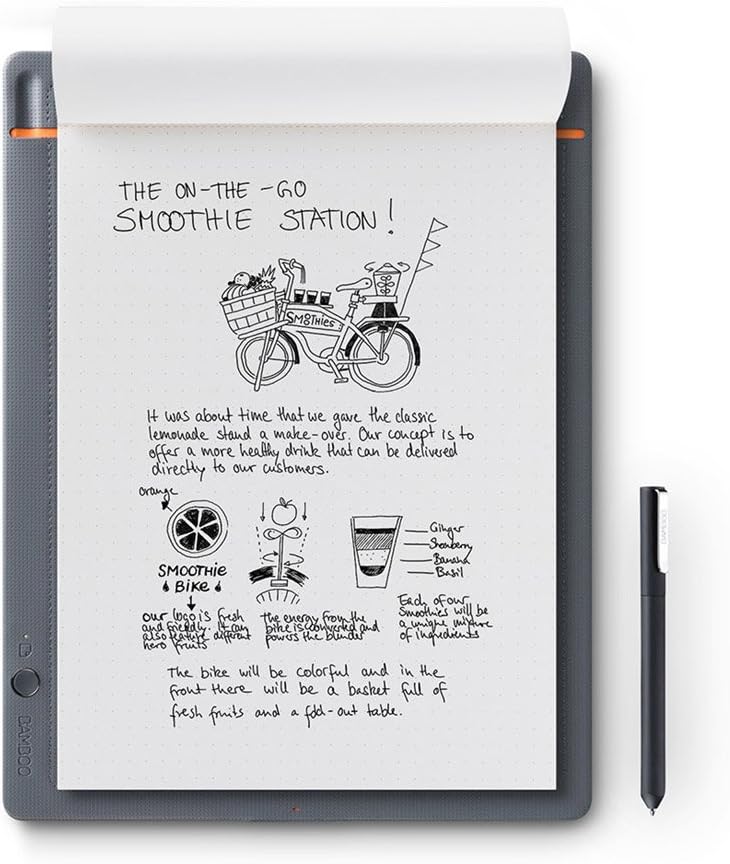 THE ON-THE-GO
SMOOTHIE STATION!
SMOOTHIES
It was about time that we gave the classic
lemonade stand a make-over. Our concept is to
offer a more healthy drink that can be delivered
directly to our customers.
orange
SMOOTHIE
BIKE
our logo is fresh
and friendly. It can
also feature different
hero fruits
The energy from the
bike is converted and
powers the blender
Ginger
Strawberry
Banana
Basil
Each of our
smoothies will be
a unique mixture
of ingredients
The bike will be colorful and in the
front there will be a basket full of
fresh fruits and a fold-out table.
BAMBOO
BAMBOO